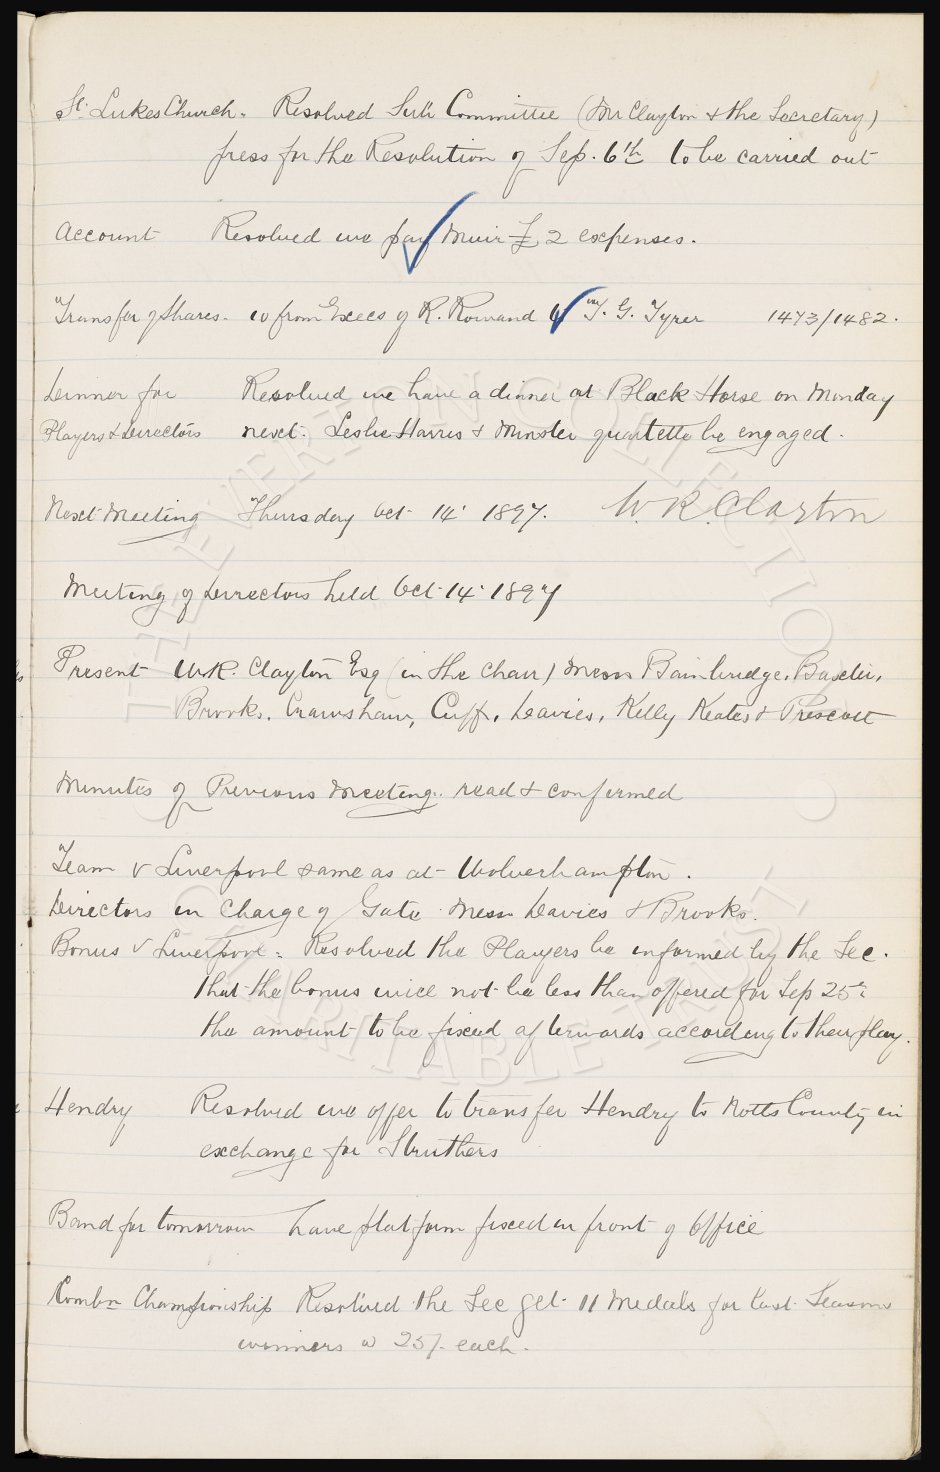 St. Lukes Church. Resolved Sub Committee (Mr Clayton & the Secretary)
press for the Resolution of Sep. 6th to be carried out
Account Resolved we pay Muir £2 expenses.
Transfer of Shares. 10 from Execs of R. Rowand to Wm J. G. Tyrer 1473/1482.
Dinner for Resolved we have a dinner at Black Horse on Monday
Players & Directors next. Leslie Harris & Minster quartette be engaged.
Next Meeting Thursday Oct 14. 1897. W. R. Clayton
Meeting of Directors held Oct. 14. 1897
Present W.R. Clayton Esq (in the Chair) Messrs Bainbridge, Baxter,
Brooks, Crawshaw, Cuff, Davies, Kelly Keates & Prescott
Minutes of Previous Meeting. read & confirmed
Team v Liverpool same as at Wolverhampton.
Directors in Charge of Gate Messrs Davies & Brooks.
Bonus v Liverpool. Resolved the Players be informed by the Sec.
that the bonus will not be less than offered for Sep 25th
the amount to be fixed afterwards according to their play.
Hendry Resolved we offer to transfer Hendry to Notts County in
exchange for Struthers
Band for tomorrow have platform fixed in front of Office
Combn Championship Resolved the Sec get 11 Medals for last Seasons
winners @ 25/- each.
THE EVERTON COLLECTION
CHARITABLE TRUST